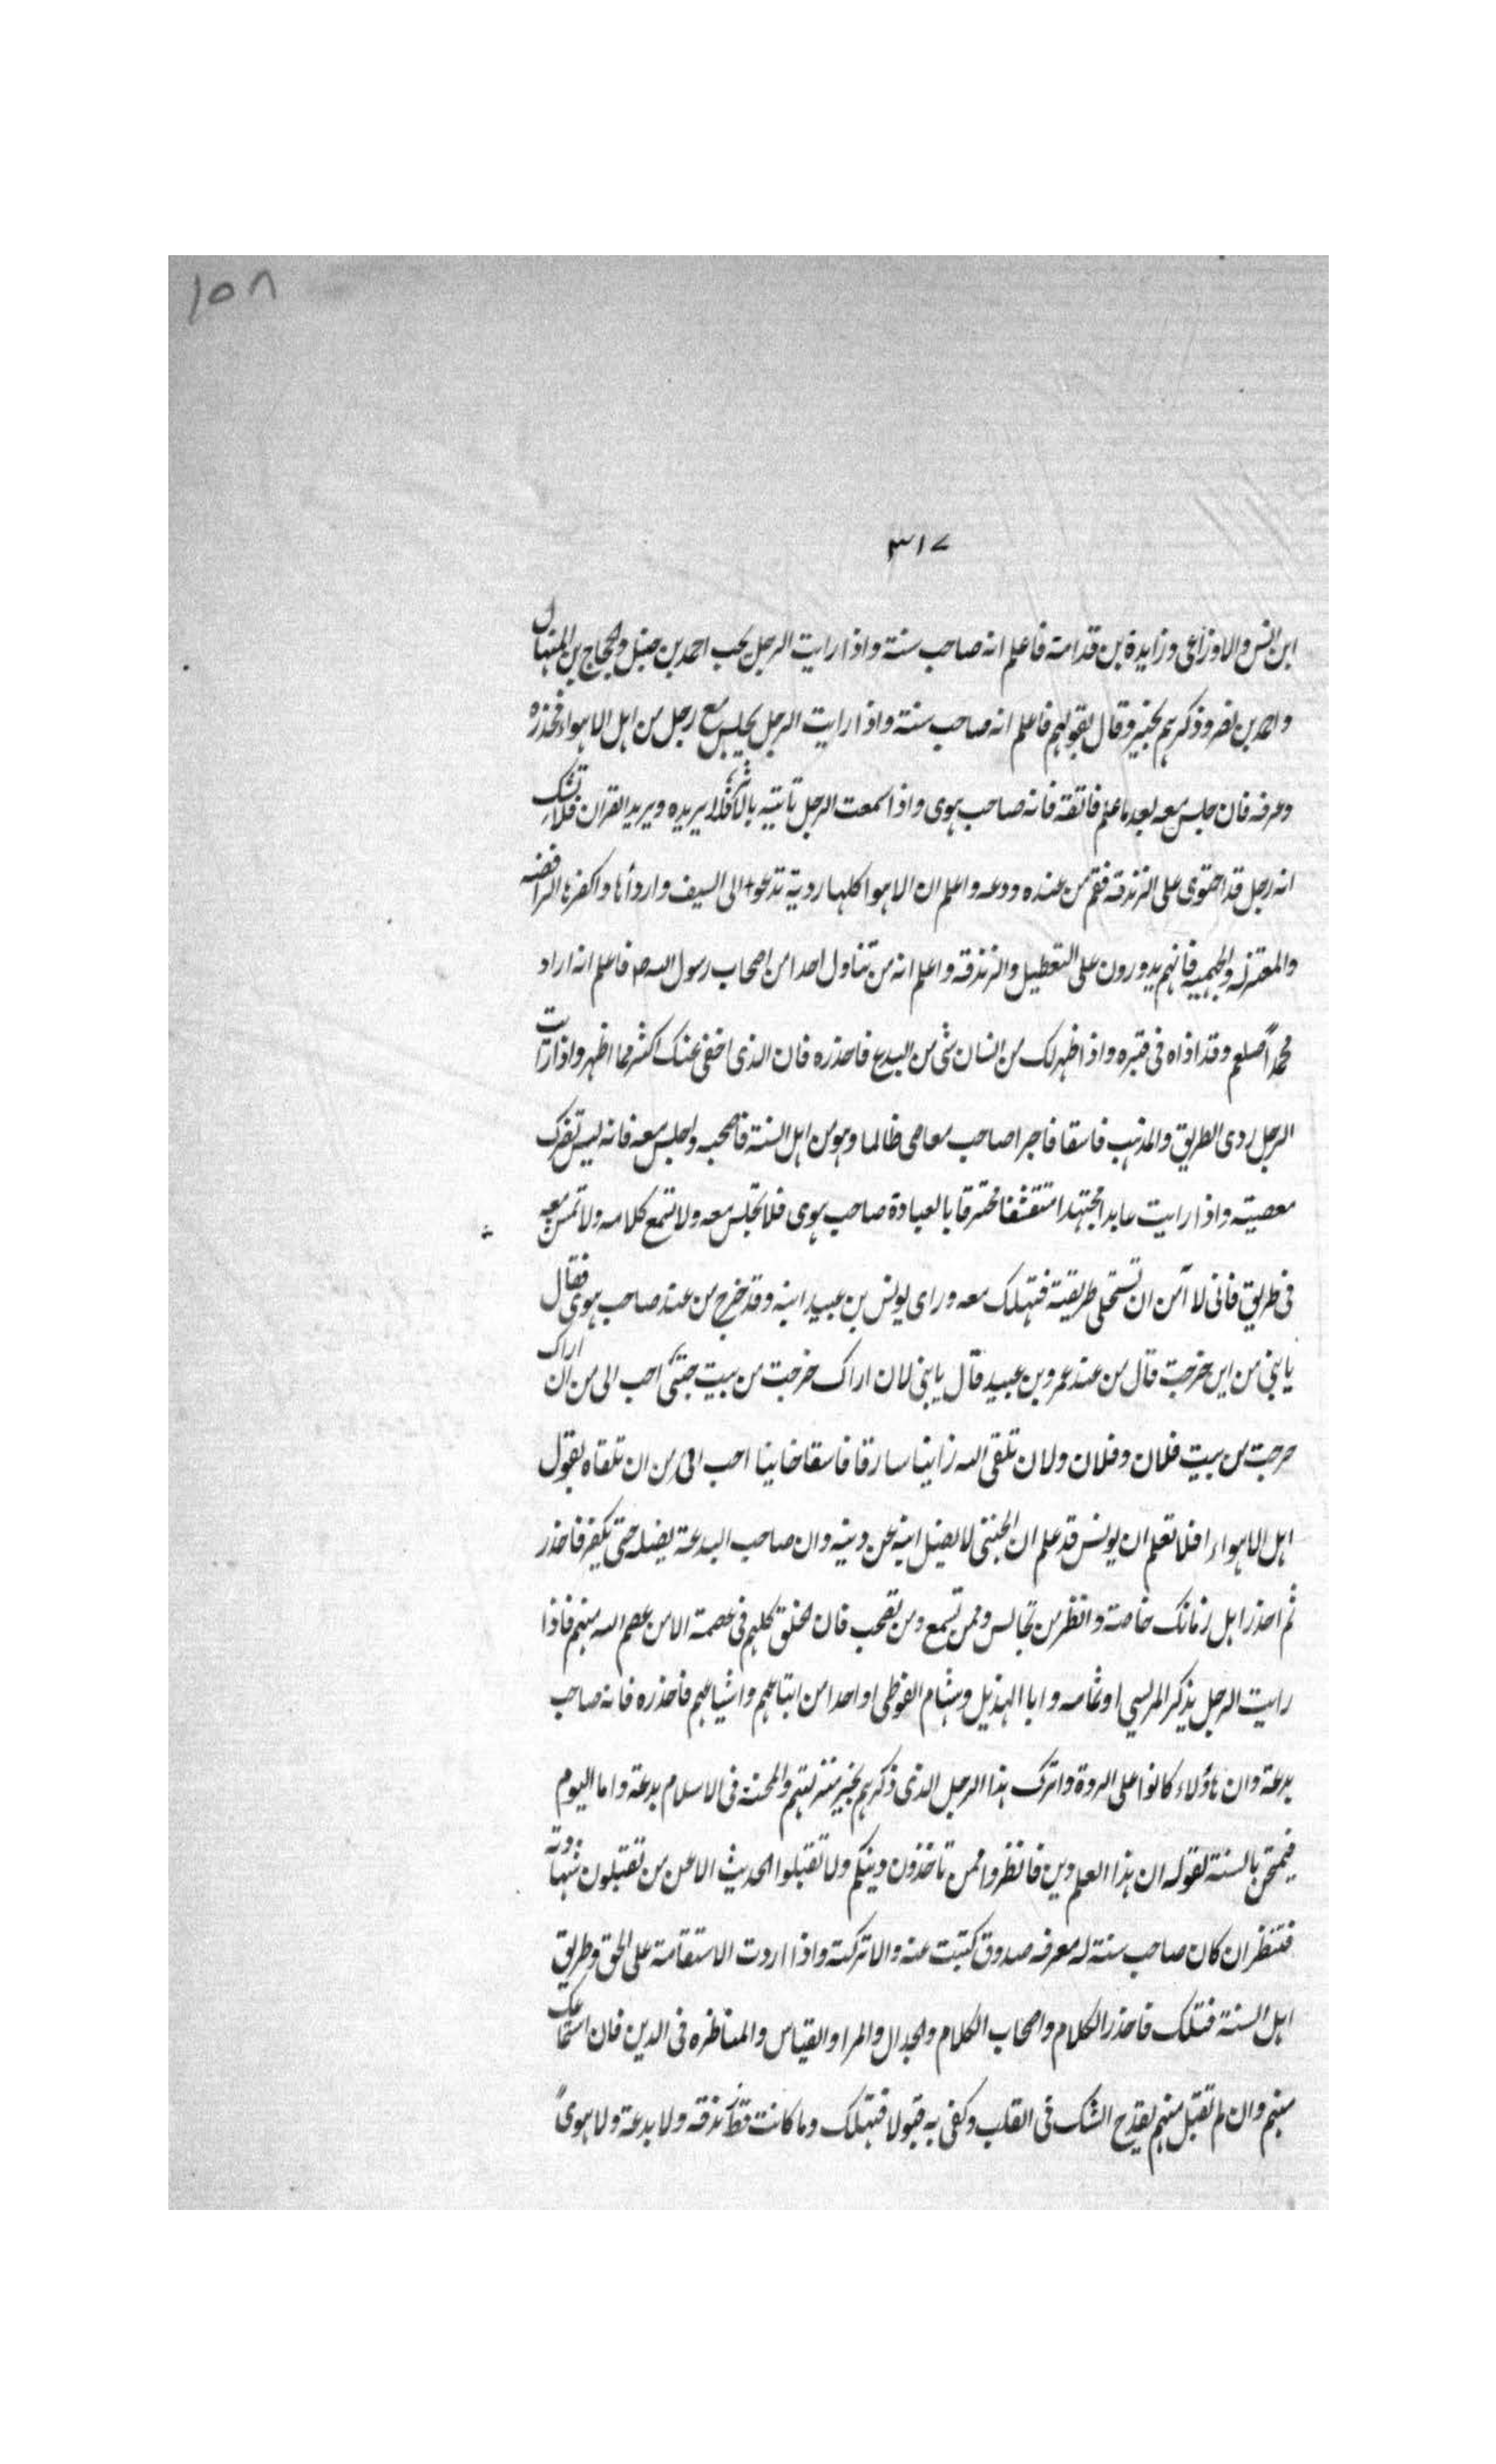 ١٥٨
٣١٧
ابن انس والاوزاعى وزايدة بن قدامة فاعلم انه صاحب سنة واذا رايت الرجل يحب احمد بن حنبل والحجاج بن المنهال
واحمد بن نصر وذكرهم بخير وقال بقولهم فاعلم انه صاحب سنة واذا رايت الرجل يجلس مع رجل من اهل الاهواء فحذره
وعرفه فان جلس معه بعد ما علم فاتقه فانه صاحب هوى واذا سمعت الرجل تاتيه بالاثر فلا يريده ويريد القران فلا تشك
انه رجل قد احتوى على الزندقة فقم من عنده ودعه واعلم ان الاهوا كلها ردية تدعو الى السيف واردأها واكفرها الرافضه
والمعتزله والجهميه فانهم يدورون على التعطيل والزندقة واعلم انه من تناول احدا من اصحاب رسول الله صـ فاعلم انه اراد
محمداً صلعم وقد اذاه فى قبره واذا ظهر لك من انسان شى من البدع فاحذره فان الذى اخفى عنك اكثر مما اظهر واذا رايت
الرجل ردى الطريق والمذهب فاسقا فاجرا صاحب معاصى ظالما وهو من اهل السنة فاصحبه واجلس معه فانه ليس تضرك
معصيته واذا رايت عابدا مجتهدا متقشفا محترقا بالعبادة صاحب هوى فلا تجلس معه ولا تسمع كلامه ولا تمش معه
فى طريق فانى لا آمن ان تستحلى طريقته فتهلك معه وراى يونس بن عبيد ابنه وقد خرج من عند صاحب هوى فقال
يا بنى من اين خرجت قال من عند عمرو بن عبيد قال يا بنى لان اراك خرجت من بيت احب الى من ان اراك
خرجت من بيت فلان وفلان ولان تلقى الله زانيا سارقا فاسقا خاينا احب الى من ان تلقاه بقول
اهل الاهواء افلا تعلم ان يونس قد علم ان الخنثى لا يضل ابنه عن دينه وان صاحب البدعة يضله حتى يكفر فاحذر
ثم احذر اهل زمانك خاصة وانظر من تجالس وممن تسمع ومن تصحب فان الخلق كلهم فى عصمة الا من عصم الله منهم فاذا
رايت الرجل يذكر المريسي او ثمامه وابا الهذيل وهشام الفوطى او احدا من اتباعهم واشياعهم فاحذره فانه صاحب
بدعة وان هاؤلاء كانوا على الردة واترك هذا الرجل الذى ذكرهم بخير منزلتهم والمحنة فى الاسلام بدعة واما اليوم
فيمتحن بالسنة لقوله ان هذا العلم دين فانظروا ممن تاخذون دينكم ولا تقبلوا الحديث الا عمن من تقبلون شهادته
فتنظر ان كان صاحب سنة له معرفه صدوق كتبت عنه والا تركته واذا اردت الاستقامة على الحق وطريق
اهل السنة قبلك فاحذر الكلام واصحاب الكلام والجدال والمرا والقياس والمناظره فى الدين فان استماعك
منهم وان لم تقبل منهم يقدح الشك فى القلب وكفى به قبولا فتهلك وما كانت قط زندقه ولا بدعة ولا هوىً